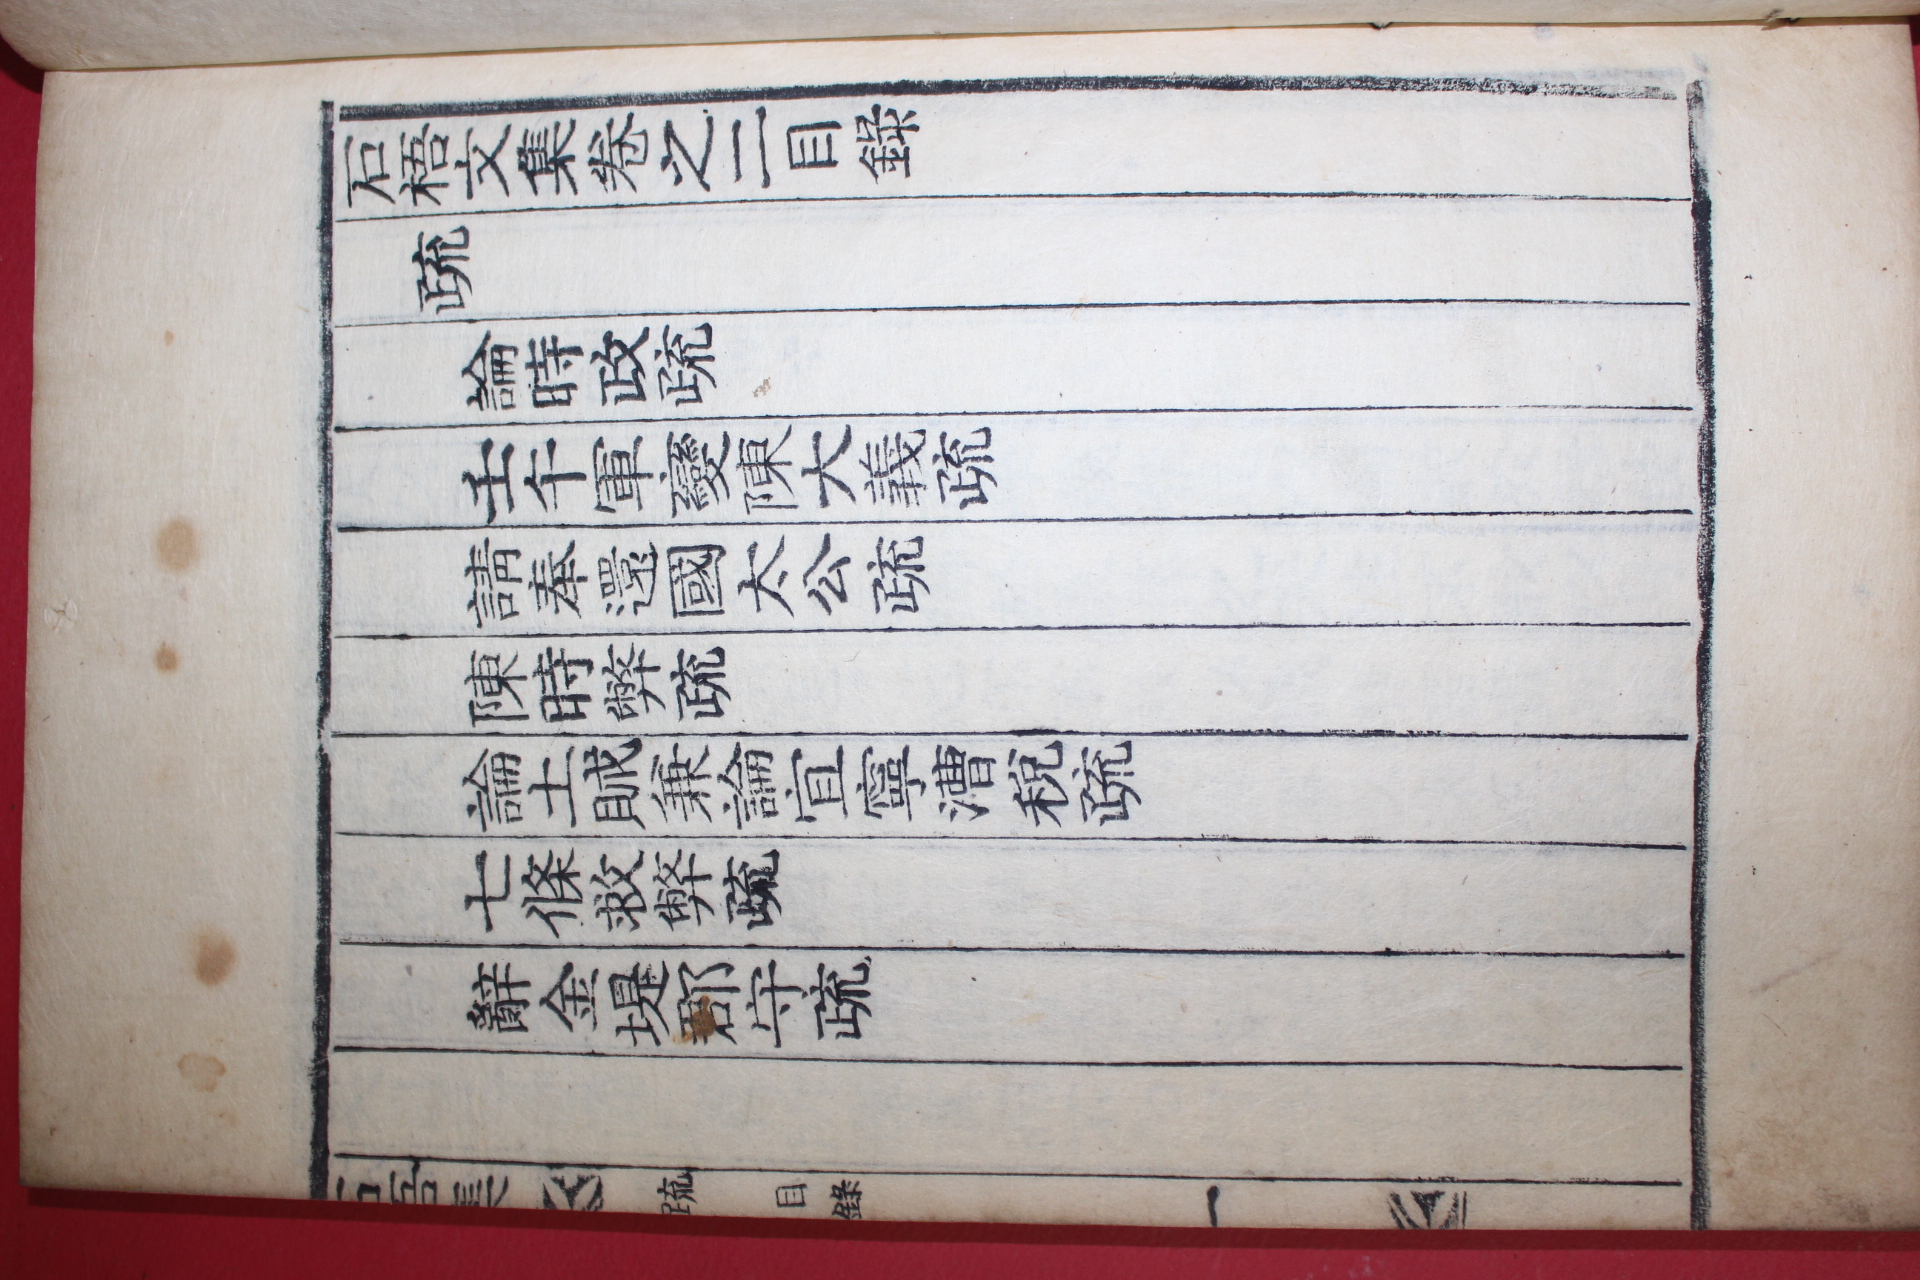 石梧文集卷之二目錄
疏
論時政疏
壬午軍變陳大義疏
請奉還國太公疏
陳時弊疏
論土賊兼論宜寧漕稅疏
七條救弊疏
辭金堤郡守疏
石梧集 疏 目錄 一